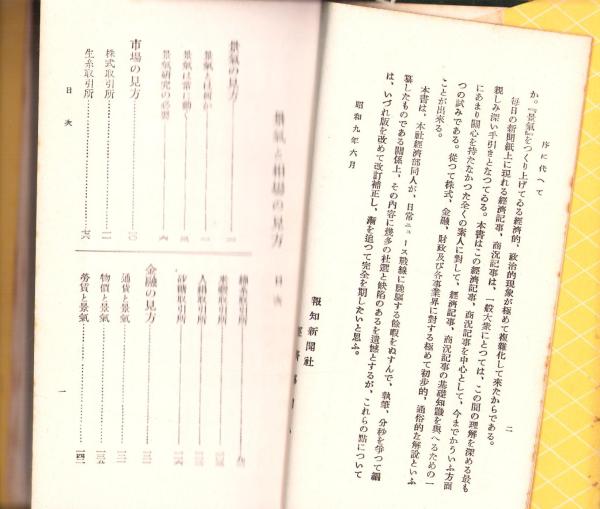 序に代へて
二
か。『景氣』をつくり上げてゐる經濟的、政治的現象が極めて複雜化して來たからである。
每日の新聞紙上に現れる經濟記事、商況記事は、一般大衆にとつては、この間の理解を深める最も
親しみ深い手引きとなつてゐる。本書はこの經濟記事、商況記事を中心として、今までかういふ方面
にあまり關心を持たなかつた全くの素人に對して、經濟記事、商況記事の基礎知識を與へるための一
つの試みである。從つて株式、金融、財政及び各事業界に對する極めて初步的、通俗的な解說といふ
ことが出來る。
本書は、本社經濟部同人が、日常ニュース戰線に馳驅する餘暇をぬすんで、執筆、分秒を爭つて編
纂したものである關係上、その內容に幾多の杜選と缺陷のあるを遺憾とするが、これらの點について
は、いづれ版を改めて改訂補正し、漸を追つて完全を期したいと思ふ。
昭和九年六月
報知新聞社
景氣と相場の見方
目次
景氣の見方
景氣とは何か
景氣は常に動く
景氣研究の必要
市場の見方 一〇
株式取引所
生糸取引所 七六
人絹取引所
砂糖取引所
金融の見方
通貨と景氣
物價と景氣
勞賃と景氣
目次
一